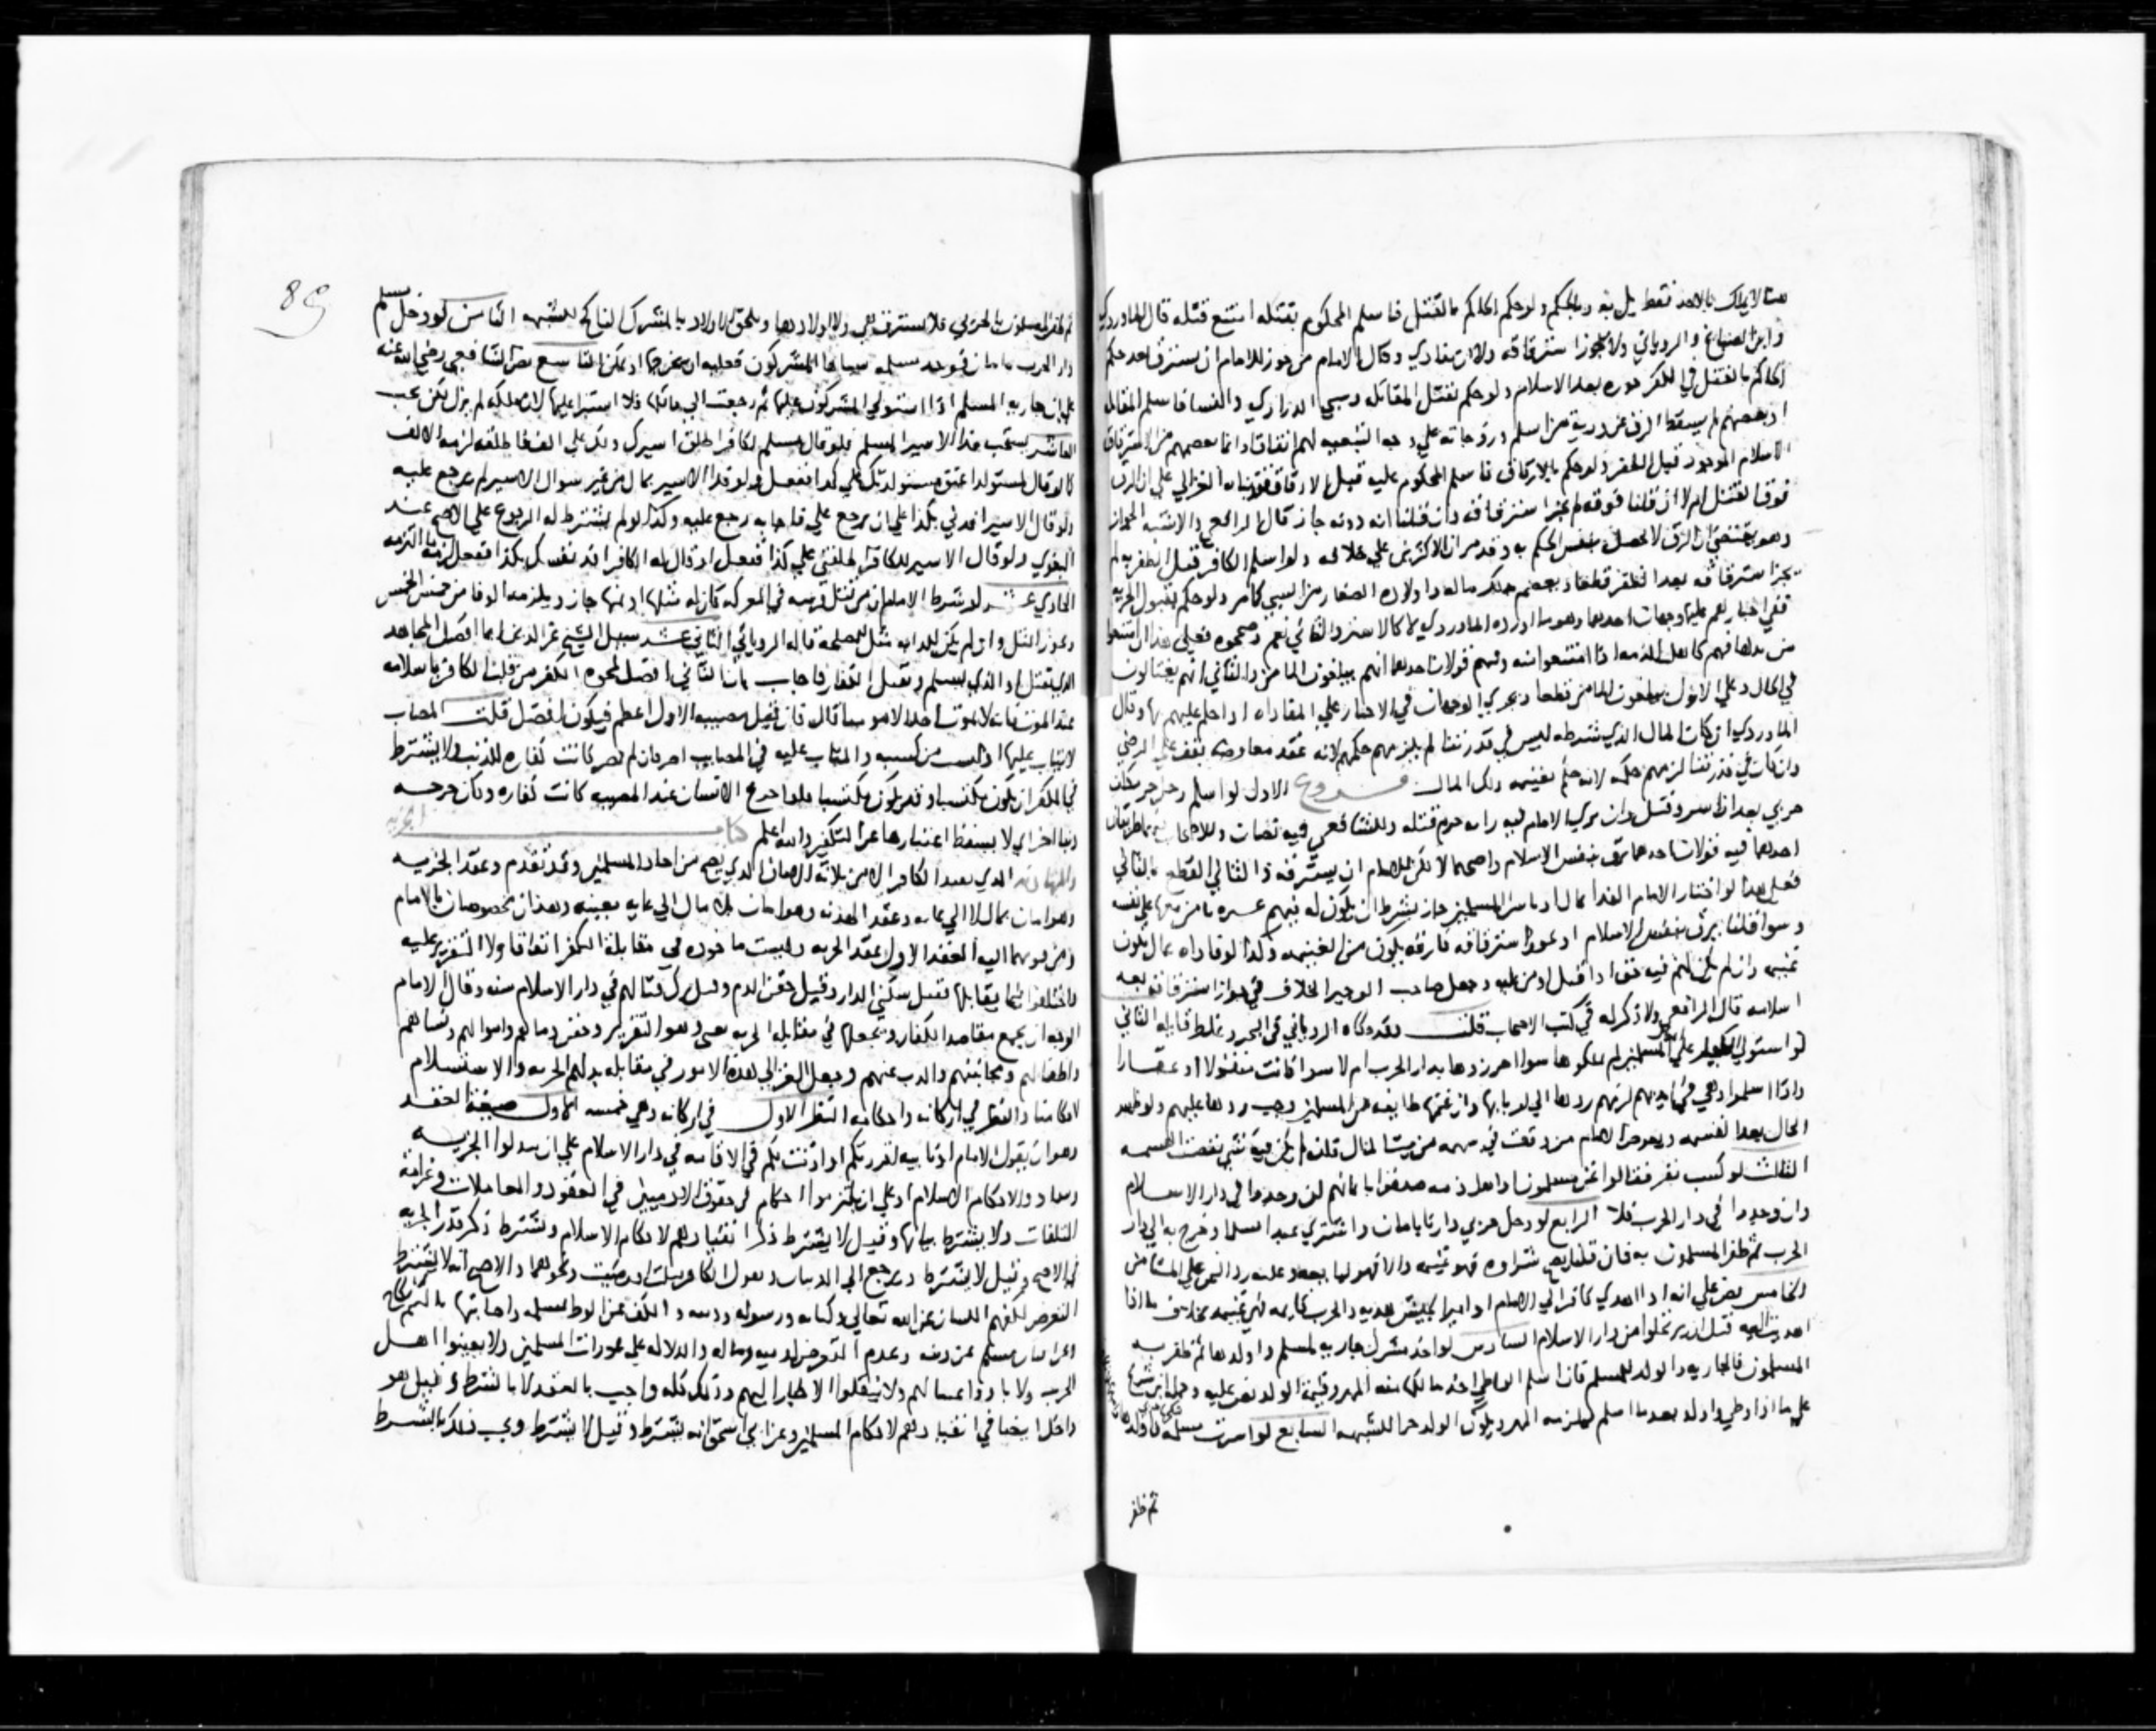 هنا لا يملك بالاخذ فقط بل به وبالحكم ولو حكم الحاكم بالقتل فاسلم المحكوم بقتله امتنع قتله قال الماوردي
وابن الصباغ والروياني ولا يجوز استرقاقه ولا ان يفادي وقال الامام من جوز للامام ان يسترق بعد حكم
الحاكم بالقتل في الكفر جوزه بعد الاسلام ولو حكم بقتل المقاتلة وسبي الذراري والنسا فاسلم المقاتلة
او بعضهم لم يسقط الرق عن ذرية من اسلم وزوجاته علي وجه التبعية لهم اتفاقا وانما يعصمهم من الاسترقاق
الاسلام الموجود قبل الظفر ولو حكم بالارقاق فاسلم المحكوم عليه قبل الارقاق الغزالي علي ان الرق
فوق القتل ام لا ان قلنا فوقه لم يجز استرقاقه وان قلنا انه دونه جاز قال الرافعي والاشبه الجواز
وهو يقتضي ان الرق لا يحصل بنفس الحكم به وقد مر ان الاكثرين علي خلافه ولو اسلم الكافر قبل الظفر به لم
يجز استرقاقه بعد الظفر قطعا ويعصم بذلك ماله واولاده الصغار من السبي كما مر ولو حكم بقبول الجزية
ففي اجبارهم عليها وجهان احدهما وهو ما اورده الماوردي لا كالاسر والثاني نعم وصححوه فعلي هذا ان امتنعوا
من بذلها فهم كاهل الذمة اذا امتنعوا منه وفيهم قولان احدهما انهم يبلغون المامن والثاني انهم يغتالون
في الحال وعلي الاول يبلغون المامن قطعا ويجري الوجهان في الاجبار علي المفاداه اذا حكم عليهم بها وقال
الماوردي ان كان المال الذي شرطه ليس في قدرتنا لم يلزمهم حكمه لانه عقد معاوضة تقف علي الرضي
وان كان في قدرتنا لزمهم حكمه لانه حكم بغنيمة ذلك المال فروع الاول لو اسلم رجل حر مكلف
حربي بعد ان اسر وقبل ان يري الامام فيه رايه حرم قتله وللشافعي فيه نصان وللاصحاب
احدهما فيه قولان احدهما يرق بنفس الاسلام واصحهما لا لكن للامام ان يسترقه و الثاني القطع بالثاني
فعلي هذا لو اختار الامام الفدا بمال او باسرا المسلمين جاز بشرط ان يكون له فيهم عشيرة يامن بها علي نفسه
وسوا قلنا يرق بنفس الاسلام او يجوز استرقاقه فارقه يكون من الغنيمة وكذا لو فاداه بمال يكون
غنيمة
اسلامه قال الرافعي ولا ذكر له في كتب الاصحاب قلت وقد حكاه الروياني في البحر وغلط قايله الثاني
لو استولي الكفار علي المسلمين لم يملكوها سوا احرزوها بدار الحرب ام لا سوا كانت منقولا او عقارا
واذا اسلموا وهي في ايديهم لزمهم ردها الي اربابها وان غنمها طايفة من المسلمين وجب ردها عليهم ولو ظهر
الحال بعد القسمة ويعوض الامام من وقعت في سهمه من بيت المال فان لم يكن فيه شي نقضت القسمة
الثالث لو كبست نفر فقالوا نحن مسلمون او اهل ذمة صدقوا بايمانهم ان وجدوا في دار الاسلام
وان وجدوا في دار الحرب فلا الرابع لو دخل حربي دارنا بامان واشتري عبدا مسلما وخرج به الي دار
الحرب ثم ظفر المسلمون به فان قلنا يصح شراوه فهو غنيمة والا فهو لبايعه وعليه رد الثمن علي المستامن
الخامس نص علي انه اذا اهدي كافر الي الامام او امير الجيش هدية والحرب قايمة فهي غنيمة بخلاف ما اذا
اهديت اليه قبل ان يرتحلوا من دار الاسلام السادس لو اخذ مشرك جارية لمسلم واولدها ثم ظفر به
المسلمون فالجارية والولد للمسلم فان اسلم الواطي اخذ مالكها منه المهر وقيمة الولد نص عليه وحمله ابن سريج
علي ما اذا وطي واولد بعد ما اسلم فيلزمه المهر ويكون الولد حرا للشبهة السابع لو اسرت مسلمة فاولدها
ثم ظفر
89
ثم ظفر المسلمون بالحربي فلا يسترق هي ولا اولادها ويلحق الاولاد بالمشرك الناكح للشبهة الثامن لو دخل مسلم
دار الحرب بامان فوجد مسلمة سباها المشركون فعليه ان يخرجها اذ يمكن التاسع نص الشافعي رضي الله عنه
علي ان جارية المسلم اذا استولي المشركون عليها ثم رجعت الي مالكها فلا استبرا عليها لان ملكه لم يزل لكن يحب
العاشر يستحب فدا الاسير المسلم فلو قال مسلم لكافر اطلق اسيرك ولك علي الف فاطلقه لزمه الالف
كما لو قال لمستولد اعتق مستولدتك علي كذا ففعل ولو فدا الاسير بمال من غير سوال الاسير لم يرجع عليه
ولو قال الاسير افدني بكذا علي ان ترجع علي فاجابه رجع عليه وكذا لو لم يشترط له الرجوع علي الاصح عند
البغوي ولو قال الاسير للكافر اطلقني علي كذا ففعل او قال له الكافر افد نفسك بكذا ففعل لزمه ما التزمه
الحادي عشر لو شرط الامام ان من قتل فرسه في المعركة كان له مثلها او ثمنها جاز ويلزمه الوفا من خمس الخمس
ويجوز النفل وان لم يكن للدابة مثل للمصلحة قاله الروياني الثاني عشر سيل الشيخ عز الدين ايما افضل المجاهد
الذي يقتل او الذي يسلم ويقتل الكفار فاجاب بان الثاني افضل لمحوه الكفر من قلب الكافر باسلامه
المصاب
لا يثاب عليها اذ ليست من كسبه والمثاب عليه في المصايب الصبر فان لم يصبر كانت كفارة للذنب ولا يشترط
في المكفر ان يكون مكتسبا وقد يكون مكتسبا فلو جزع الانسان عند المصيبة كانت كفارة وكان جزعه
ذنبا اخر اي لا يسقط اعتبارها عن التكفير والله اعلم كتاب الجزية
والمهادنة الذي يفيد الكافر الامن ثلاثة الامان الذي يصح من احاد المسلمين وقد تقدم وعقد الجزية
وهو امان بمال لا الي غاية وعقد الهدنة وهو امان بلا مال الي غاية بعينه وهذان مخصوصان بالامام
ومن فوضهما اليه العقد الاول عقد الجزية وليست ماخوذة في مقابلة الكفر اتفاقا ولا التقرير عليه
واختلفوا فيما يقابلها فقيل سكني الدار وقيل حقن الدم وقيل ترك قتالهم في دار الاسلام سنة وقال الامام
الوجه ان يجمع مقاصد الكفار ونجعلها في مقابلة الجزية وهو التقرير وحقن دمايهم واموالهم ونسايهم
واطفالهم ومجانينهم والذب عنهم وجعل الغزالي هذه الامور في مقابلة بذلهم الجزية والاستسلام
لاحكامنا والنظر في اركانه واحكامه النظر الاول في اركانه وهي خمسة الاول صيغة العقد
وهو ان يقول الامام او نايبه اقررتكم او اذنت لكم في الاقامة في دار الاسلام علي ان تبذلوا الجزية
وتنقادوا لاحكام الاسلام او علي ان تلتزموا احكامي في حقوق الادميين في العقود والمعاملات وغرامة
المتلفات ولا يشترط بيانها وقيل لا يشترط ذكر انقيادهم لاحكام الاسلام ويشترط ذكر قدر الجزية
في الاصح وقيل لا يشترط ويرجع الي الدينار ونحوهما والاصح انه لا يشترط
التعرض لكفهم اللسان عن الله تعالي وكتابه ورسوله ودينه والكف عن الوط لمسلمة واصابتها باسم نكاح
وعن افتتان مسلم عن دينه وعدم التعرض لدمه وماله والدلالة علي عورات المسلمين ولا يعينوا اهل
الحرب ولا ياووا عينا لهم ولا ينقلوا الاخبار اليهم وذلك كله واجب بالعقد لا بالشرط وقيل هو
داخل ايضا في انقيادهم لاحكام المسلمين وعن ابي اسحق انه يشترط وقيل لا يشترط ويجب ذلك بالشرط